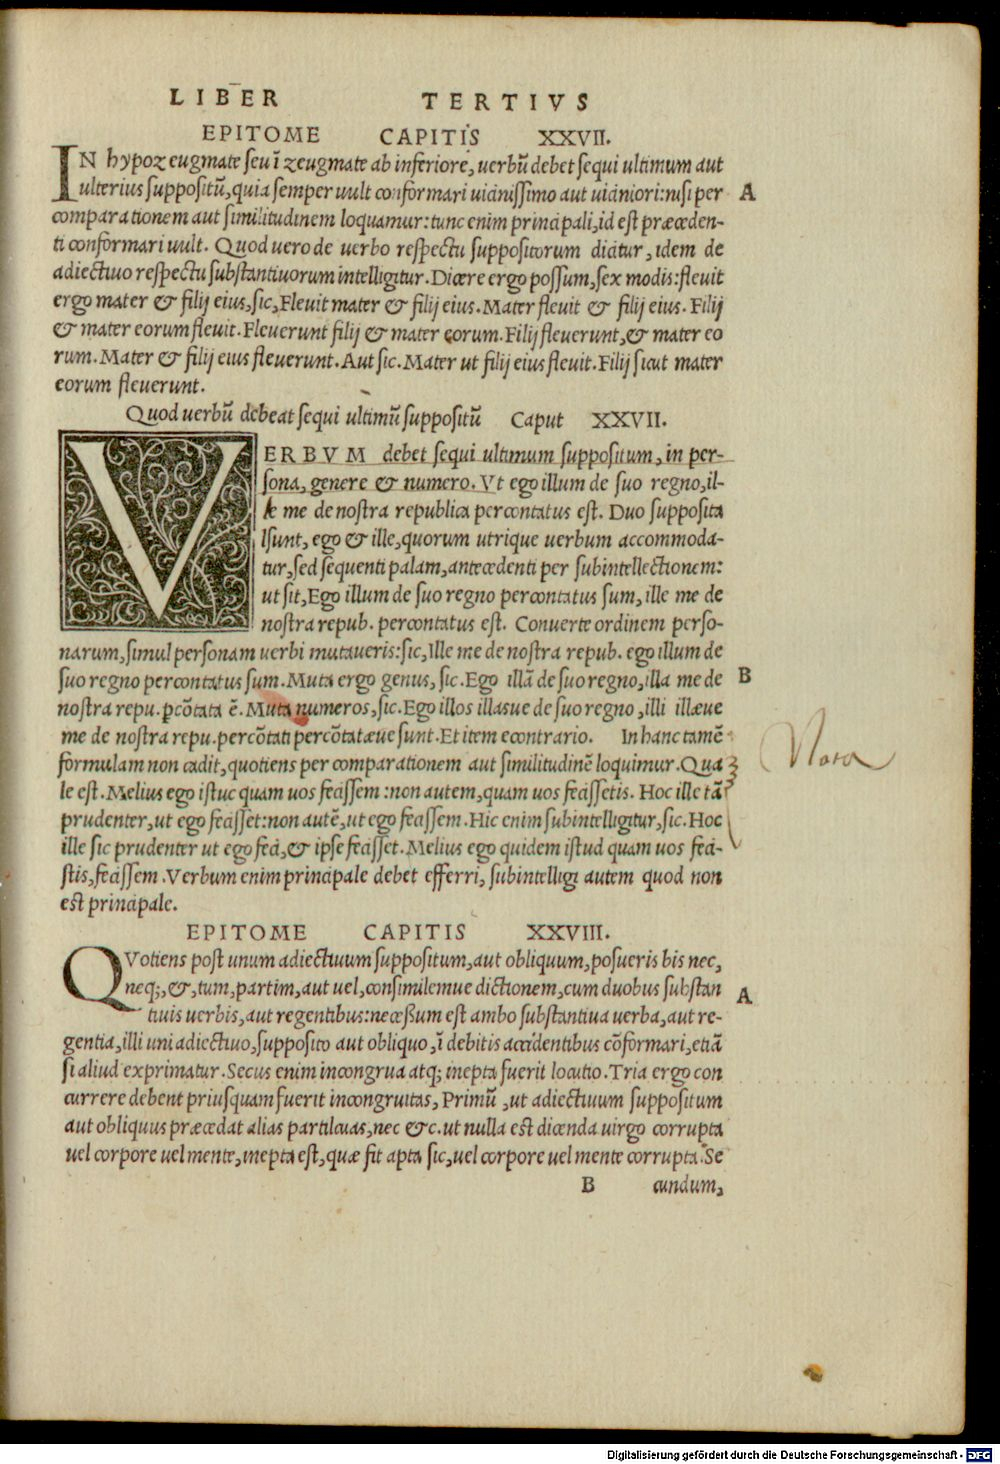 LIBER TERTIVS
EPITOME CAPITIS XXVII.
IN hypozeugmate seu ī zeugmate ab inferiore, verbū debet sequi ultimum aut
ulterius suppositū, quia semper uult conformari uicinissimo aut uiciniori: nisi per A
comparationem aut similitudinem loquamur: tunc enim principali, id est præceden-
ti conformari uult. Quod uero de uerbo respectu suppositorum dicitur, idem de
adiectiuo respectu substantiuorum intelligitur. Dicere ergo possum, sex modis: fleuit
ergo mater & filij eius, sic, Fleuit mater & filij eius. Mater fleuit & filij eius. Filij
& mater eorum fleuit. Fleuerunt filij & mater eorum. Filij fleuerunt, & mater eo
rum. Mater & filij eius fleuerunt. Aut sic. Mater ut filij eius fleuit. Filij sicut mater
eorum fleuerunt.
Quod uerbū debeat sequi ultimū suppositū Caput XXVII.
VERBVM debet sequi ultimum suppositum, in per-
sona, genere & numero. Vt ego illum de suo regno, il-
le me de nostra republica percontatus est. Duo supposita
sunt, ego & ille, quorum utrique uerbum accommoda-
tur, sed sequenti palam, antecedenti per subintellectionem:
ut sit, Ego illum de suo regno percontatus sum, ille me de
nostra repub. percontatus est. Conuerte ordinem perso-
narum, simul personam uerbi mutaueris: sic, Ille me de nostra repub. ego illum de
suo regno percontatus sum. Muta ergo genus, sic. Ego illā de suo regno, illa me de B
nostra repu. pcōtata ē. Muta numeros, sic. Ego illos illasue de suo regno, illi illæue
me de nostra repu. percōtati percōtatæue sunt. Et item econtrario. In hanc tamē
formulam non cadit, quotiens per comparationem aut similitudinē loquimur. Qua Nota
le est. Melius ego istuc quam uos fecissem: non autem, quam uos fecissetis. Hoc ille tā
prudenter, ut ego fecisset: non autē, ut ego fecissem. Hic enim subintelligitur, sic. Hoc
ille sic prudenter ut ego feci, & ipse fecisset. Melius ego quidem istud quam uos feci-
stis, fecissem. Verbum enim principale debet efferri, subintelligi autem quod non
est principale.
EPITOME CAPITIS XXVIII.
QVotiens post unum adiectiuum suppositum, aut obliquum, posueris bis nec,
neq;, &, tum, partim, aut uel, consimilemue dictionem, cum duobus substan A
tiuis uerbis, aut regentibus: necessum est ambo substantiua uerba, aut re-
gentia, illi uni adiectiuo, supposito aut obliquo, ī debitis accidentibus cōformari, etiā
si aliud exprimatur. Secus enim incongrua atq; inepta fuerit locutio. Tria ergo con
currere debent priusquam fuerit incongruitas, Primū, ut adiectiuum suppositum
aut obliquus præcedat alias particulas, nec &c. ut nulla est dicenda uirgo corrupta
uel corpore uel mente, inepta est, quæ fit apta sic, uel corpore uel mente corrupta. Se
B cundum,
Digitalisierung gefördert durch die Deutsche Forschungsgemeinschaft - DFG